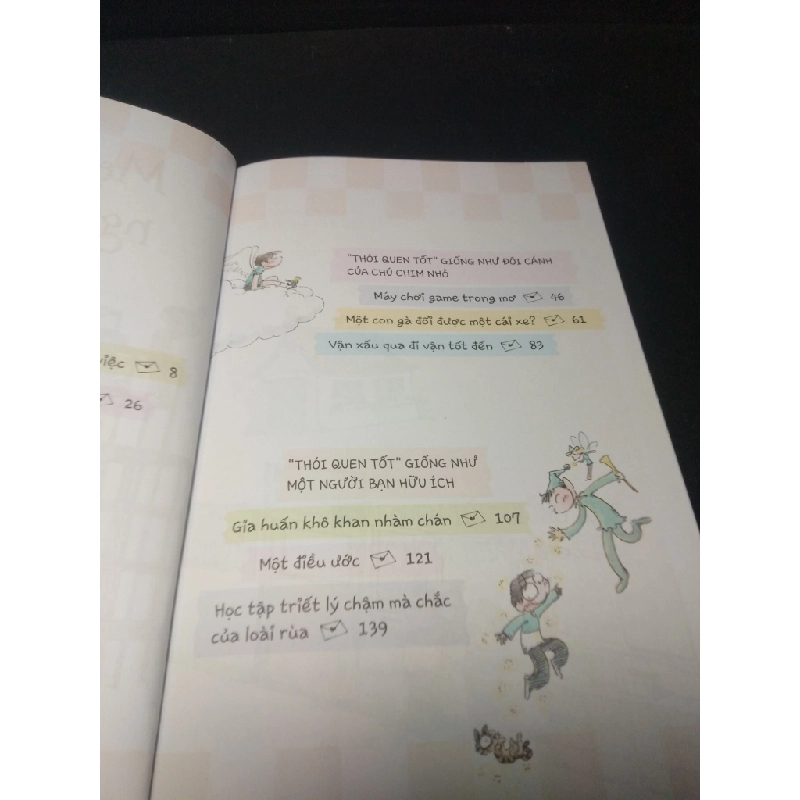 iệc 8
26
"THÓI QUEN TỐT" GIỐNG NHƯ ĐÔI CÁNH
CỦA CHÚ CHIM NHỎ
Máy chơi game trong mơ 46
Một con gà đổi được một cái xe? 61
Vận xấu qua đi vận tốt đến 83
"THÓI QUEN TỐT" GIỐNG NHƯ
MỘT NGƯỜI BẠN HỮU ÍCH
Gia huấn khô khan nhàm chán 107
Một điều ước 121
Học tập triết lý chậm mà chắc
của loài rùa 139